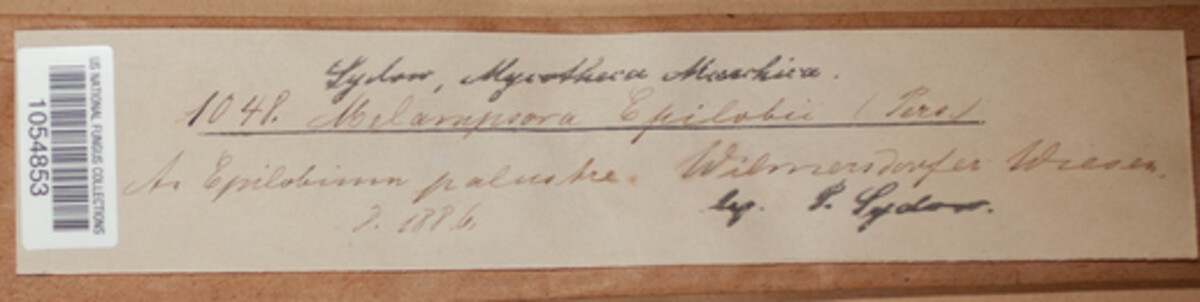 US NATIONAL FUNGUS COLLECTIONS
1054853
Sydow, Mycotheca Marchica.
1048. Melampsora Epilobii (Pers)
An Epilobium palustre. Wilmersdorfer Wiesen.
1886. lg. P. Sydow.